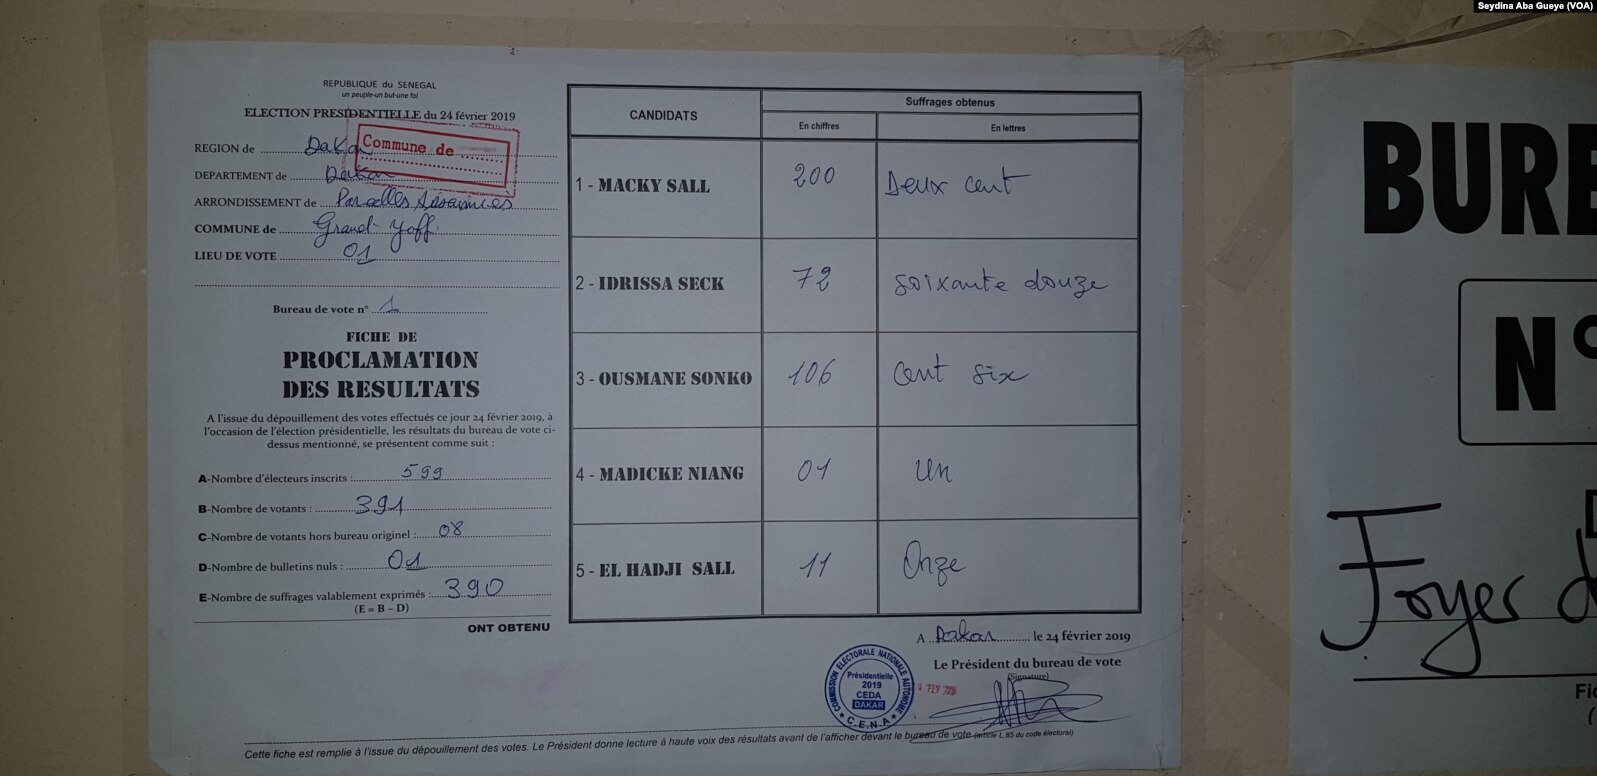 Seydina Aba Gueye (VOA)
REPUBLIQUE du SENEGAL
un peuple-un but-une foi
ELECTION PRESIDENTIELLE du 24 février 2019
REGION de Dakar
Commune de
DEPARTEMENT de Dakar
ARRONDISSEMENT de Parcelles Assainies
COMMUNE de Grand-Yoff
LIEU DE VOTE 01
Bureau de vote n° 1
FICHE DE
PROCLAMATION
DES RESULTATS
A l'issue du dépouillement des votes effectués ce jour 24 février 2019, à
l'occasion de l'élection présidentielle, les résultats du bureau de vote ci-
dessus mentionné, se présentent comme suit :
A-Nombre d'électeurs inscrits : 599
B-Nombre de votants : 391
C-Nombre de votants hors bureau originel : 08
D-Nombre de bulletins nuls : 01
E-Nombre de suffrages valablement exprimés : 390
(E = B – D)
ONT OBTENU
CANDIDATS
Suffrages obtenus
En chiffres En lettres
1 - MACKY SALL 200 Deux cent
2 - IDRISSA SECK 72 soixante douze
3 - OUSMANE SONKO 106 Cent six
4 - MADICKE NIANG 01 un
5 - EL HADJI SALL 11 Onze
A Dakar le 24 février 2019
Le Président du bureau de vote
(Signature)
COMMISSION ELECTORALE NATIONALE AUTONOME
Présidentielle
2019
CEDA
DAKAR
C.E.N.A
Cette fiche est remplie à l'issue du dépouillement des votes. Le Président donne lecture à haute voix des résultats avant de l'afficher devant le bureau de vote (article L 85 du code électoral)
BURE
N°
Foyer d
Fic
(